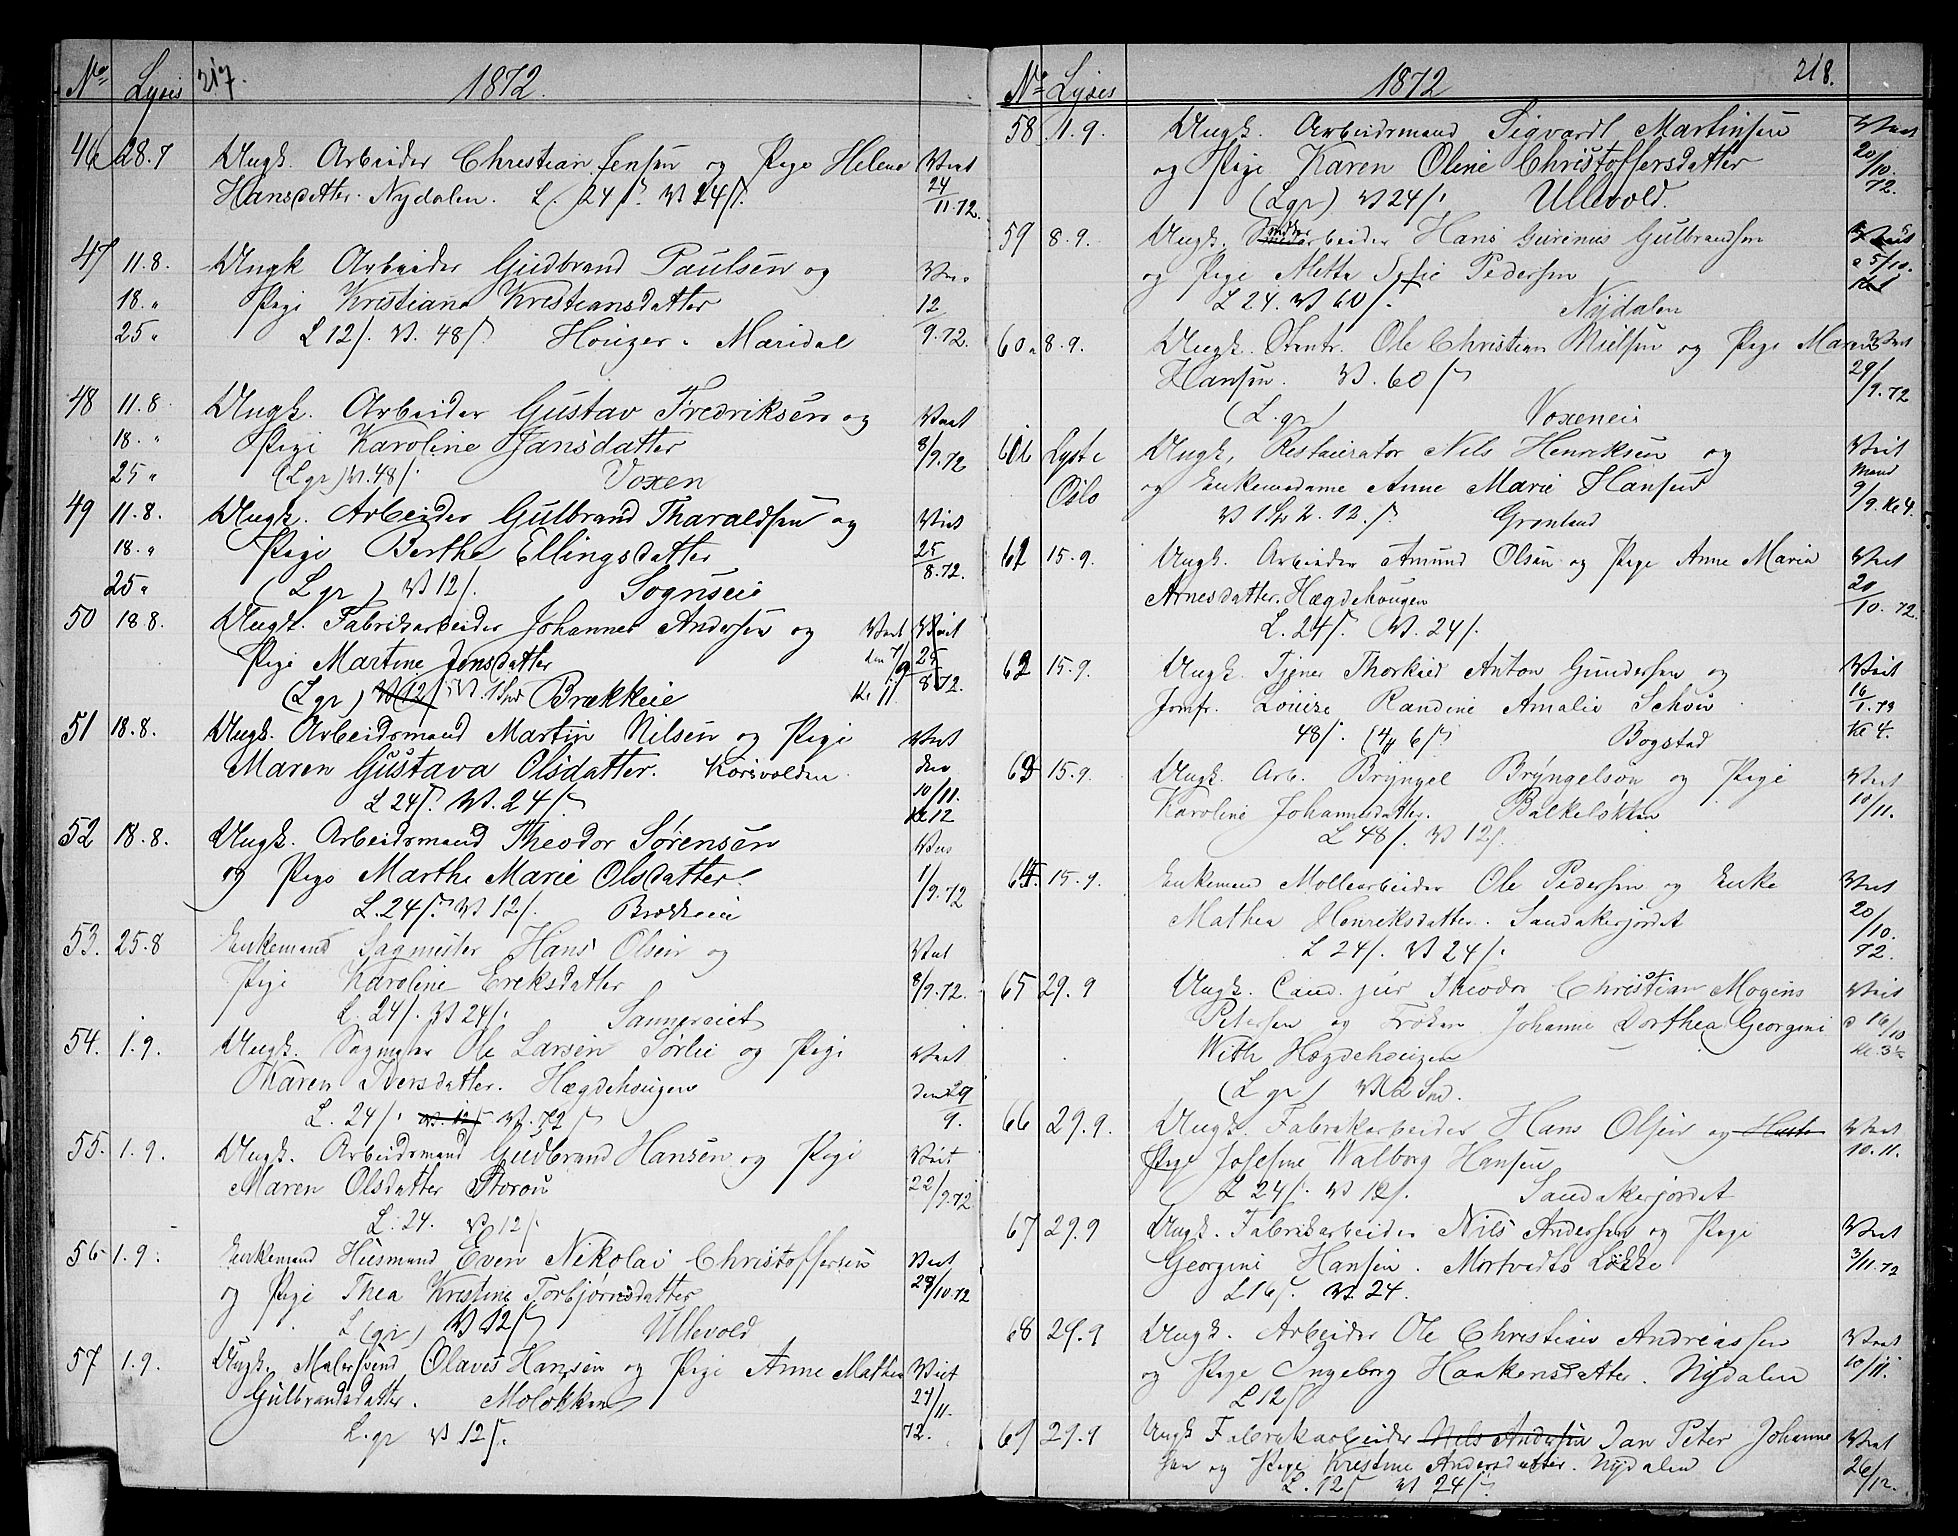 No. Lysis 217. 1872.
46 28.7 Ungk. Arbeider Christian Jensen og Pige Helene Viet
Hansdatter. Nydalen. L. 24 ſ. V 24 ſ. 24/11.72.
47 11.8. Ungk Arbeider Gudbrand Paulsen og
18. " Pige Kristiane Kristiansdatter 12
25 " L 12 ſ. V. 48 ſ. Houger. Maridal 9.72.
48 11.8. Ungk. Arbeider Gustav Fredriksen og Viet
18. " Pige Karoline Hansdatter 8/9.72
25 " (L gr) V. 48 ſ. Voxen
49 11.8. Ungk. Arbeider Gulbrand Tharaldsen og Viet
18. " Pige Berthe Ellingsdatter 25
25 " (L gr) V 12 ſ. Sognseie 8.72.
50 18.8. Ungk. Fabrikarbeider Johannes Andersen og Viet Viet
Pige Martine Jensdatter den 7/9 25
(L gr) V 12 ſ. V. 1 Spd Brækkeie Kl 11. 8.72.
51 18.8. Ungk. Arbeidsmand Martin Nilsen og Pige Viet
Maren Gustava Olsdatter. Korsvolden. den
L 24 ſ. V. 24 ſ. 10/11.
Kl 12
52 18.8. Ungk. Arbeidsmand Theodor Sørensen
og Pige Marthe Marie Olsdatter. 1/9.72
L. 24 ſ. V 12 ſ. Brækkeie
53. 25.8 Enkemand Sagmester Hans Olsen og Viet
Pige Karoline Ereksdatter 8/9.72.
L. 24 ſ. V 24 ſ. Sannereiet
54. 1.9. Ungk. Sagmester Ole Larsen Sørlie og Pige Viet
Karen Iversdatter. Hægdehougen den 29
L. 24 ſ. V. 12 ſ V. 72 ſ 9.
55. 1.9. Ungk. Arbeidsmand Gudbrand Hansen og Pige Viet
Maren Olsdatter Storøn 22/9.72
L. 24. V 12 ſ
56 1.9. Enkemand Husmand Even Nikolai Christoffersen Viet
og Pige Thea Kristine Torbjørnsdatter /10.72
L (gr) V 12 ſ Ullevold
57 1.9. Ungk. Malersvend Olaves Hansen og Pige Anne Mathea Viet
Gulbrandsdatter. Moløkken 24/11.
L. gr V 12 ſ. 72.
No. Lysis 1872 218.
58 1.9. Ungk. Arbeidsmand Sigvardt Martinsen Viet
og Pige Karen Oline Christoffersdatter 20/10.
(L gr) V 24 ſ. Ullevold. 72.
59 8.9. Ungk. arbeider Hans Gurinius Gulbrandsen
og Pige Mette Sofie Pedersen 5/10.
L 24. V 60 ſ. Nydalen
60 8.9. Ungk. Ole Christian Nielsen og Pige Maren Viet
Hansen. V. 60 ſ 29/9.72
(L. gr) Voxeneie
Lyst i Ungk. Restauratør Nils Henriksen og Viet
Oslo og Enkemadame Anne Marie Hansen 9/9. Kl 4.
V 1 Sp 2. 12. ſ. Grønland
61 15.9. Ungk. Arbeider Amund Olsen og Pige Anne Maria Viet
Arnesdatter. Hægdehougen 20/10.72.
L. 24 ſ. V. 24 ſ.
62 15.9. Ungk. Tjener Thorkild Anton Gundersen og Viet
Jomfr. Louise Randine Amalie Schou 16/1.73
48 ſ. Bogstad Kl 4.
63 15.9. Ungk. Arb. Bryngel Bryngelson og Pige Viet
Karoline Johannesdatter. Balkeløkken 10/11.
L 48 ſ. V 12 ſ.
64. 15.9. Enkemand Møllearbeider Ole Pedersen og Enke Viet
Mathea Henriksdatter. Sandakerjordet 20/10.
L 24 ſ. V 24 ſ. 72.
65 29.9 Ungk. Cand. jur Theodor Christian Mogens Viet
Petersen og Frøken Johanne Dorthea Georgine 16/10
With Hægdehougen Kl. 3½
(L gr) V 2 Spd.
66 29.9. Ungk. Fabrikarbeider Hans Olsen og Viet
Pige Josefine Walborg Hansen 10.11.
L 24 ſ. V 12 ſ. Sandakerjordet
67 29.9 Ungk. Fabrikarbeider Nils Andersen og Pige Viet
Georgine Hansen. Mortvedts Løkke 3/11.72
L 16 ſ. V. 24.
68 29.9 Ungk. Arbeider Ole Christian Andreassen Viet
og Pige Ingeborg Haakensdatter. Nydalen 10/11.
L 12 ſ
69 29.9 Ungk Fabrikarbeider Nils Andersen Jan Peter Johanne Viet
sen og Pige Kristine Andersdatter. Nydalen 26/12.
L. 12 ſ V 24 ſ.